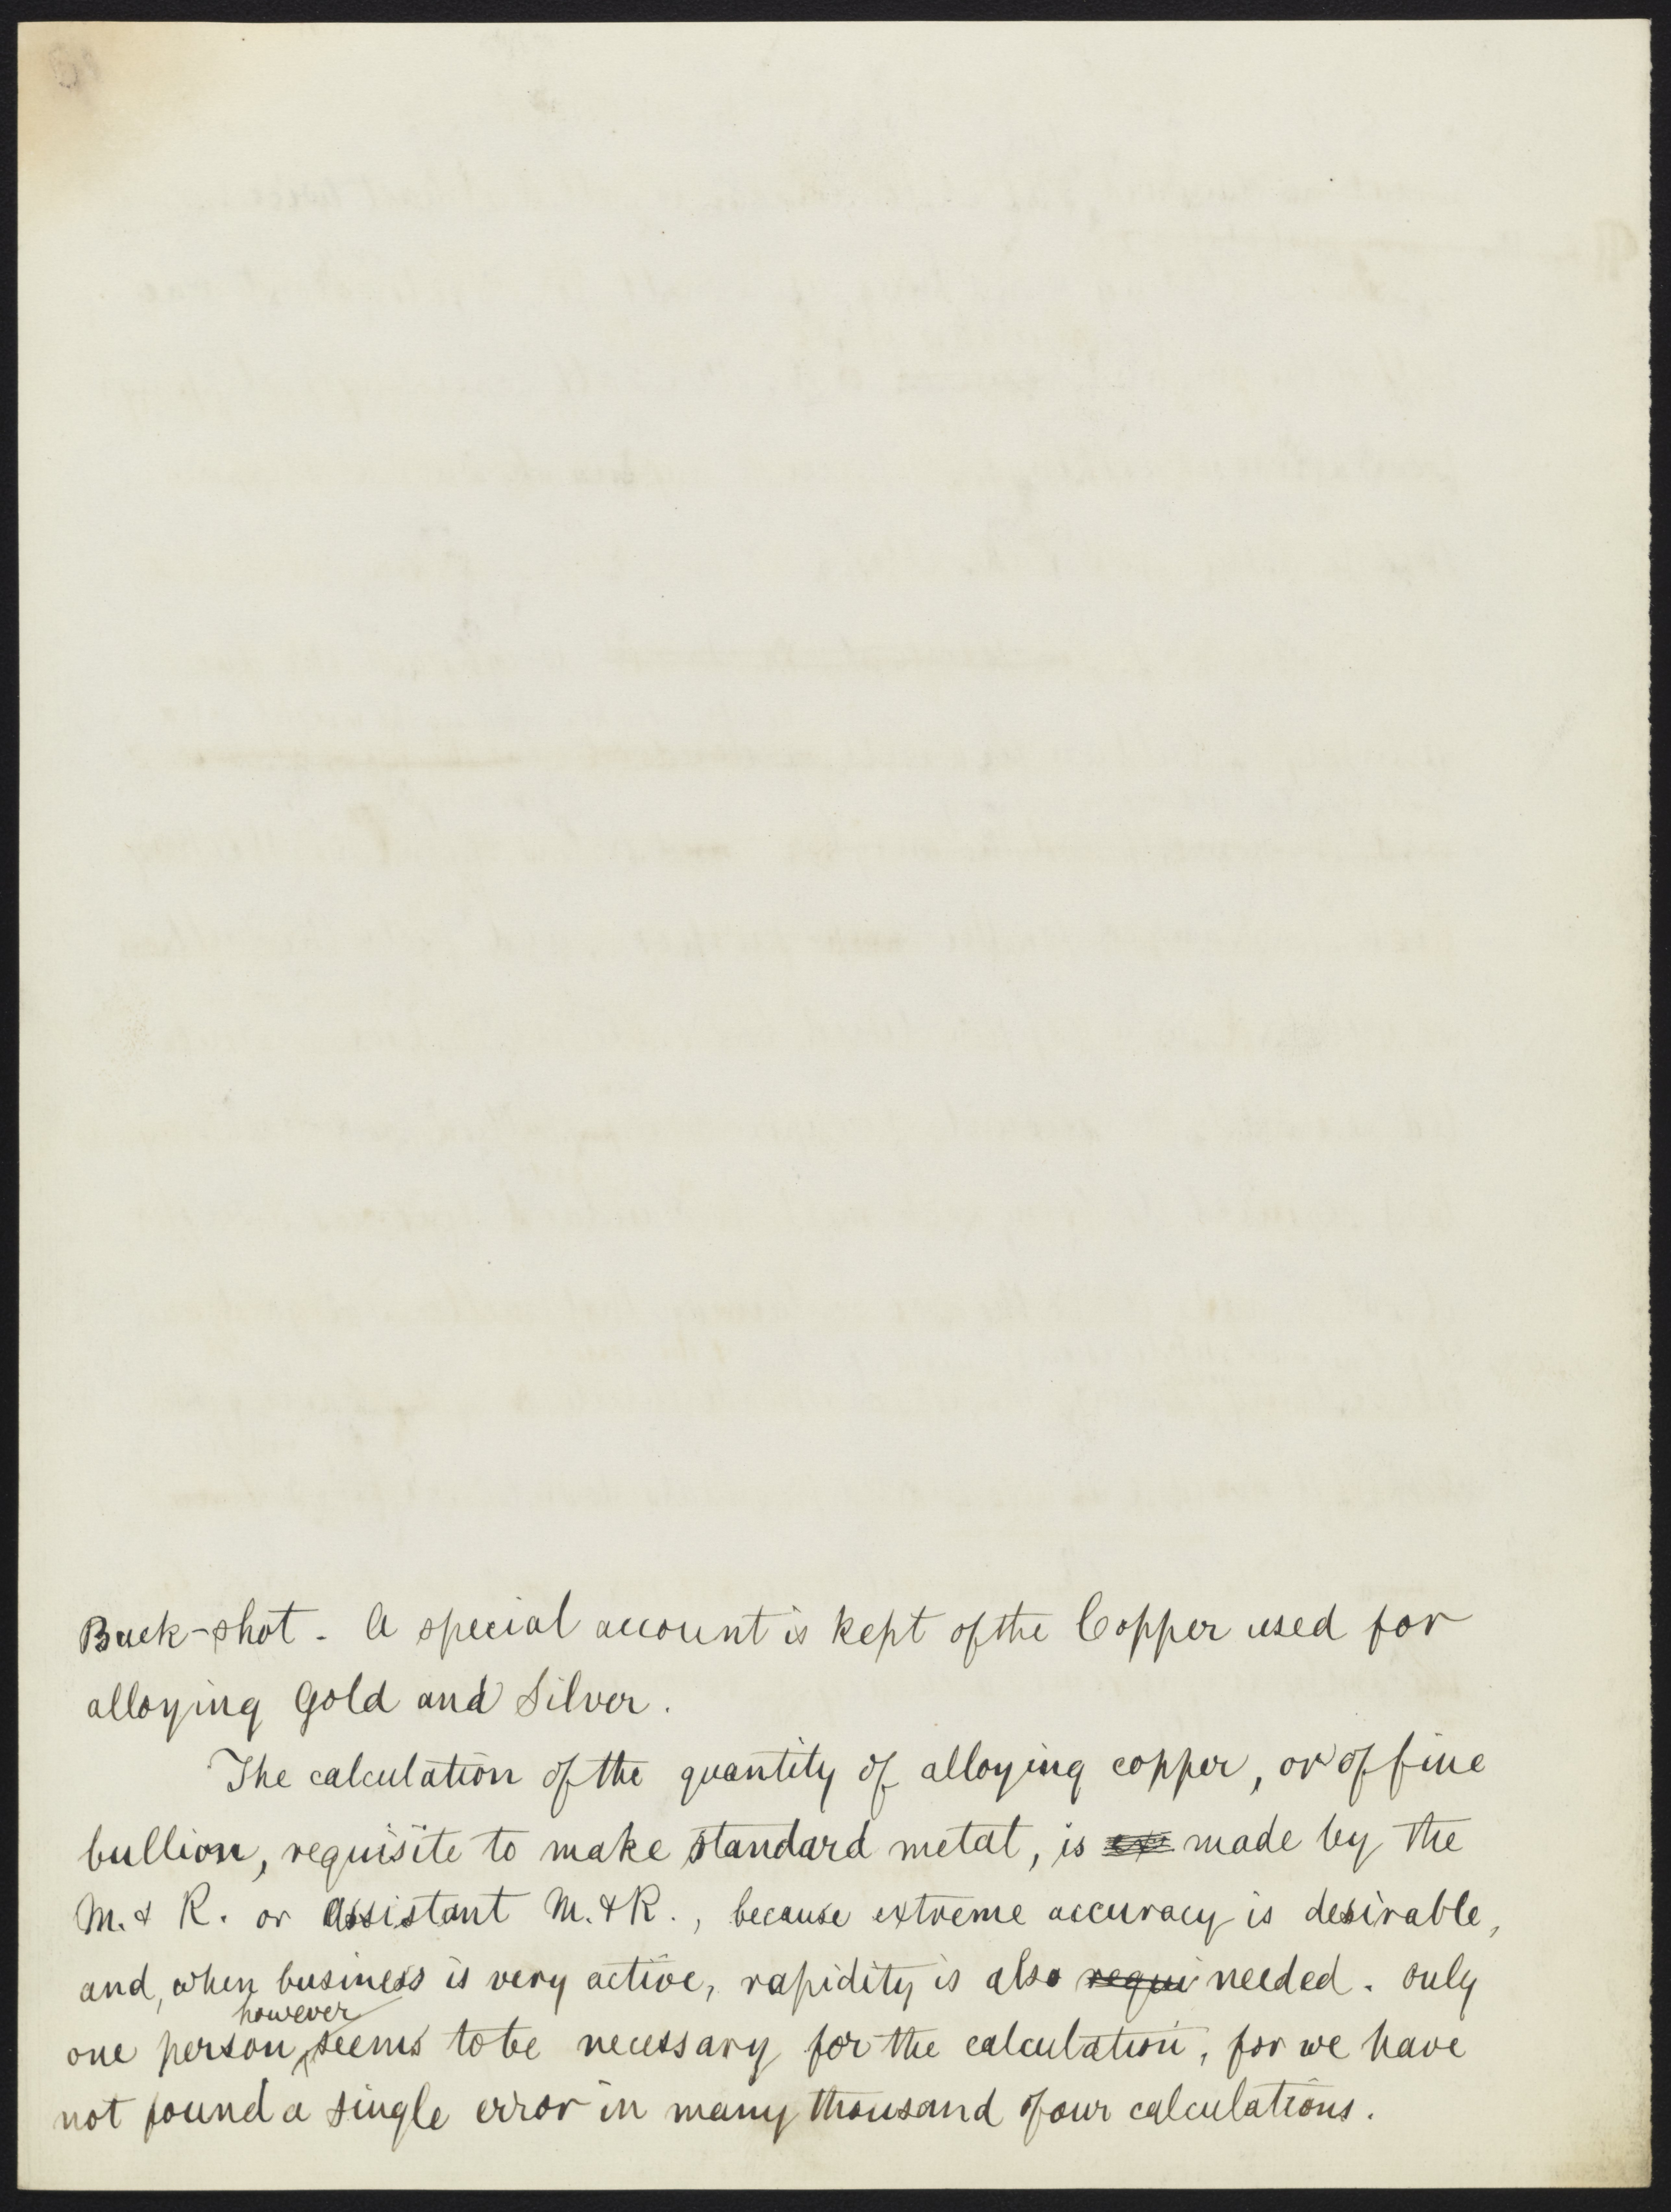 Buck-shot. A special account is kept of the Copper used for
alloying Gold and Silver.
The calculation of the quantity of alloying copper, or of fine
bullion, requisite to make standard metal, is made by the
M. & R. or Assistant M. & R., because extreme accuracy is desirable,
and, when business is very active, rapidity is also requi needed. Only
however
one person seems to be necessary for the calculation, for we have
not found a single error in many thousand of our calculations.